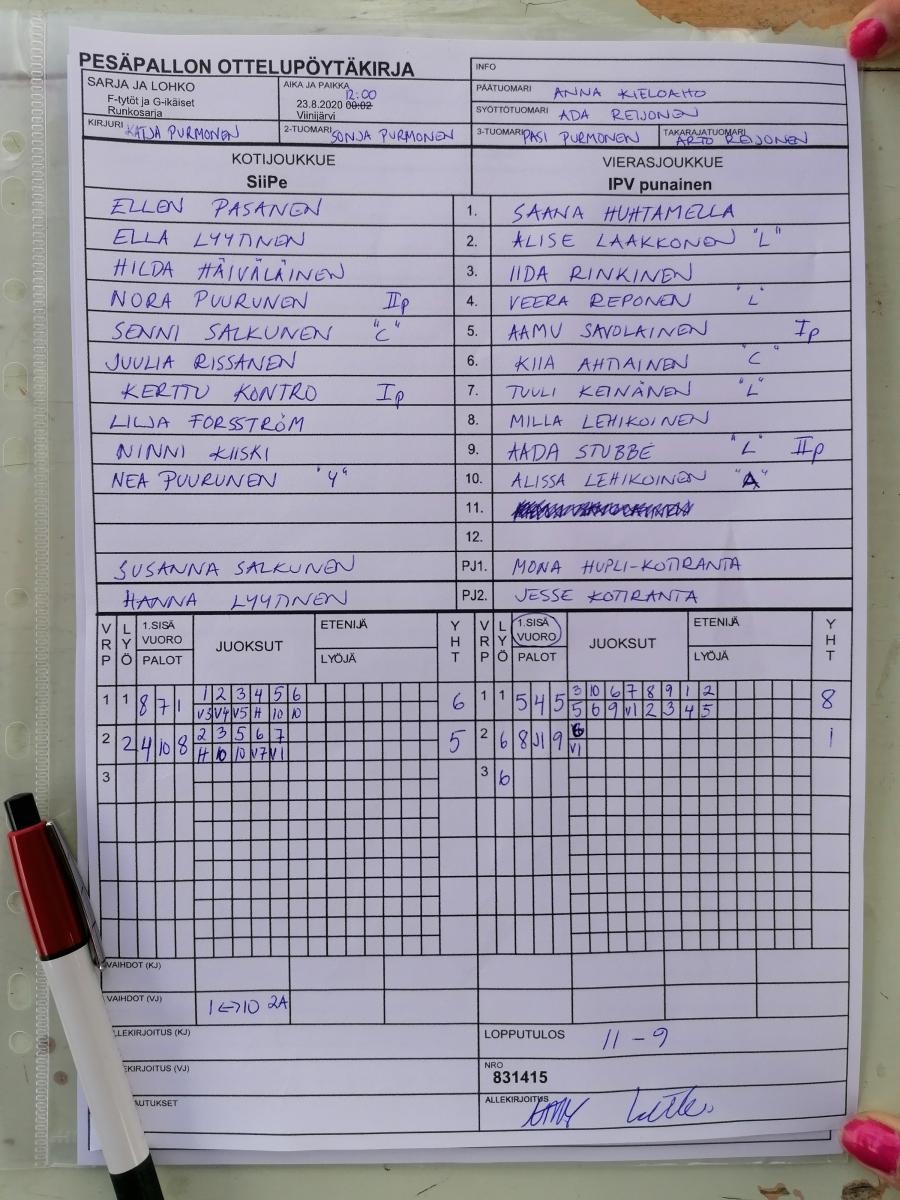 PESÄPALLON OTTELUPÖYTÄKIRJA
INFO
SARJA JA LOHKO
F-tytöt ja G-ikäiset
Runkosarja
AIKA JA PAIKKA
12:00
23.8.2020 00:02
Viinijärvi
PÄÄTUOMARI ANNA KIELOAHO
SYÖTTÖTUOMARI ADA REIJONEN
KIRJURI KATJA PURMONEN
2-TUOMARI SONJA PURMONEN
3-TUOMARI PASI PURMONEN
TAKARAJATUOMARI ARTO REIJONEN
KOTIJOUKKUE
SiiPe
VIERASJOUKKUE
IPV punainen
ELLEN PASANEN 1. SAANA HUHTAMELLA
ELLA LYYTINEN 2. ALISE LAAKKONEN "L"
HILDA HÄIVÄLÄINEN 3. IIDA RINKINEN
NORA PUURUNEN IIp 4. VEERA REPONEN "L"
SENNI SALKUNEN "C" 5. AAMU SAVOLAINEN Ip
JUULIA RISSANEN 6. KIIA AHTIAINEN "C"
KERTTU KONTRO Ip 7. TUULI KEINÄNEN "L"
LILJA FORSSTRÖM 8. MILLA LEHIKOINEN
NINNI KIISKI 9. AADA STUBBE "L" IIp
NEA PUURUNEN "4" 10. ALISSA LEHIKOINEN "A"
11.
12.
SUSANNA SALKUNEN PJ1. MONA HUPLI-KOTIRANTA
HANNA LYYTINEN PJ2. JESSE KOTIRANTA
VRP LYÖ 1.SISÄ VUORO PALOT JUOKSUT ETENIJÄ LYÖJÄ YHT VRP LYÖ 1.SISÄ VUORO PALOT JUOKSUT ETENIJÄ LYÖJÄ YHT
1 1 8 7 1 1 2 3 4 5 6 6 1 1 5 4 5 3 10 6 7 8 9 1 2 8
V3 V4 V5 H 10 10 5 6 9 V1 2 3 4 5
2 2 4 10 8 2 3 5 6 7 5 2 6 8 9 6 1
H 10 10 V7 V1 V1
3 3 6
VAIHDOT (KJ)
VAIHDOT (VJ) 1↔10 2A
LLEKIRJOITUS (KJ)
LOPPUTULOS 11-9
EKIRJOITUS (VJ)
NRO
831415
AUTUKSET
ALLEKIRJOITUS